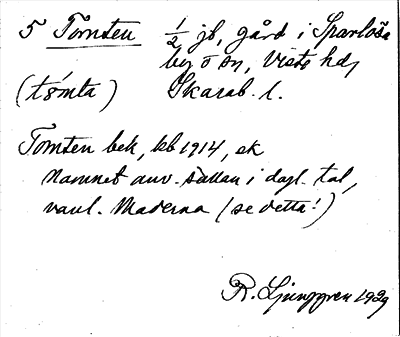 5 Tomten 1/2 jb, gård i Sparlösa
by o sn, Viste hd,
(tómta) Skarab. l.
Tomten bek, kb 1914, ek
Namnet anv. sällan i dagl. tal,
vanl. Maderna (se detta!)
R. Ljunggren 1929